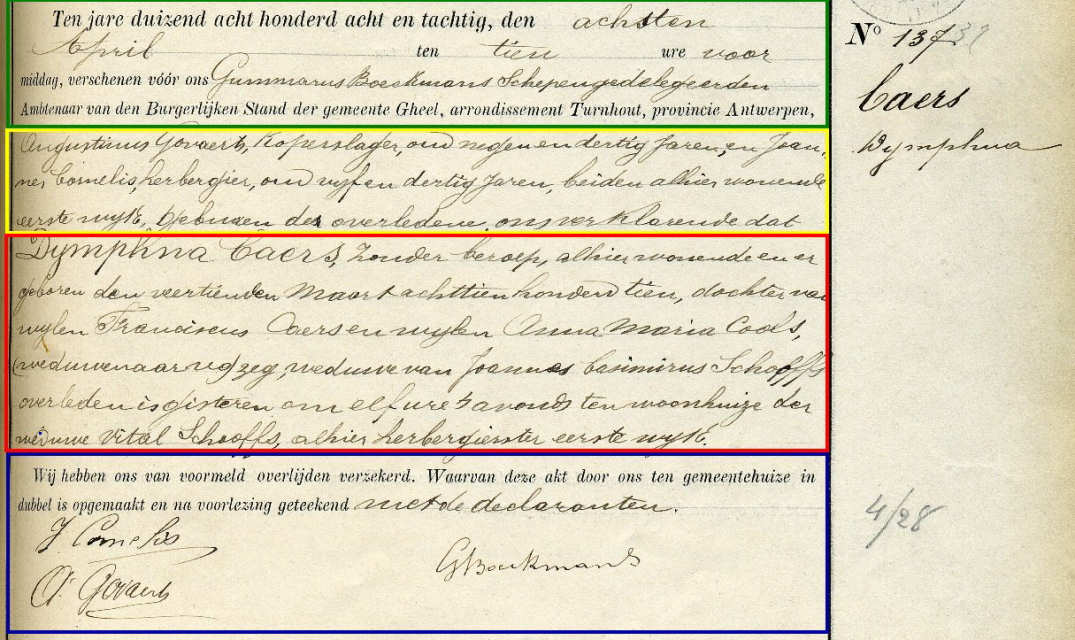 Ten jare duizend acht honderd acht en tachtig, den achsten
April ten tien ure voor
middag, verschenen vóór ons Gummarus Boeckmans Schepengedelegeerden
Ambtenaar van den Burgerlijken Stand der gemeente Gheel, arrondissement Turnhout, provincie Antwerpen,
Augustinus Govaerts, Koperslager, oud negen en dertig Jaren, en Joan-
nes Cornelis, herbergier, oud vyf en dertig Jaren, beiden alhier wonende
eerste wyk, gebuuren der overledene, ons verklarende dat
Dymphna Caers, zonder beroep, alhier wonende en er
geboren den veertienden Maart achttien honderd tien, dochter van
wylen Franciscus Caers en wylen Anna Maria Cools,
(weduwenaar vg) zeg, weduwe van Joannes Casimirus Schooffs
overleden is gisteren om elf ure 's avonds ten woonhuize der
weduwe Vital Schooffs, alhier herbergierster eerste wyk.
Wij hebben ons van voormeld overlijden verzekerd. Waarvan deze akt door ons ten gemeentehuize in
dubbel is opgemaakt en na voorlezing geteekend met de declaranten.
J Cornelis
GBoeckmans
A. Govaerts
Nº 137
Caers
Dymphna
4/28